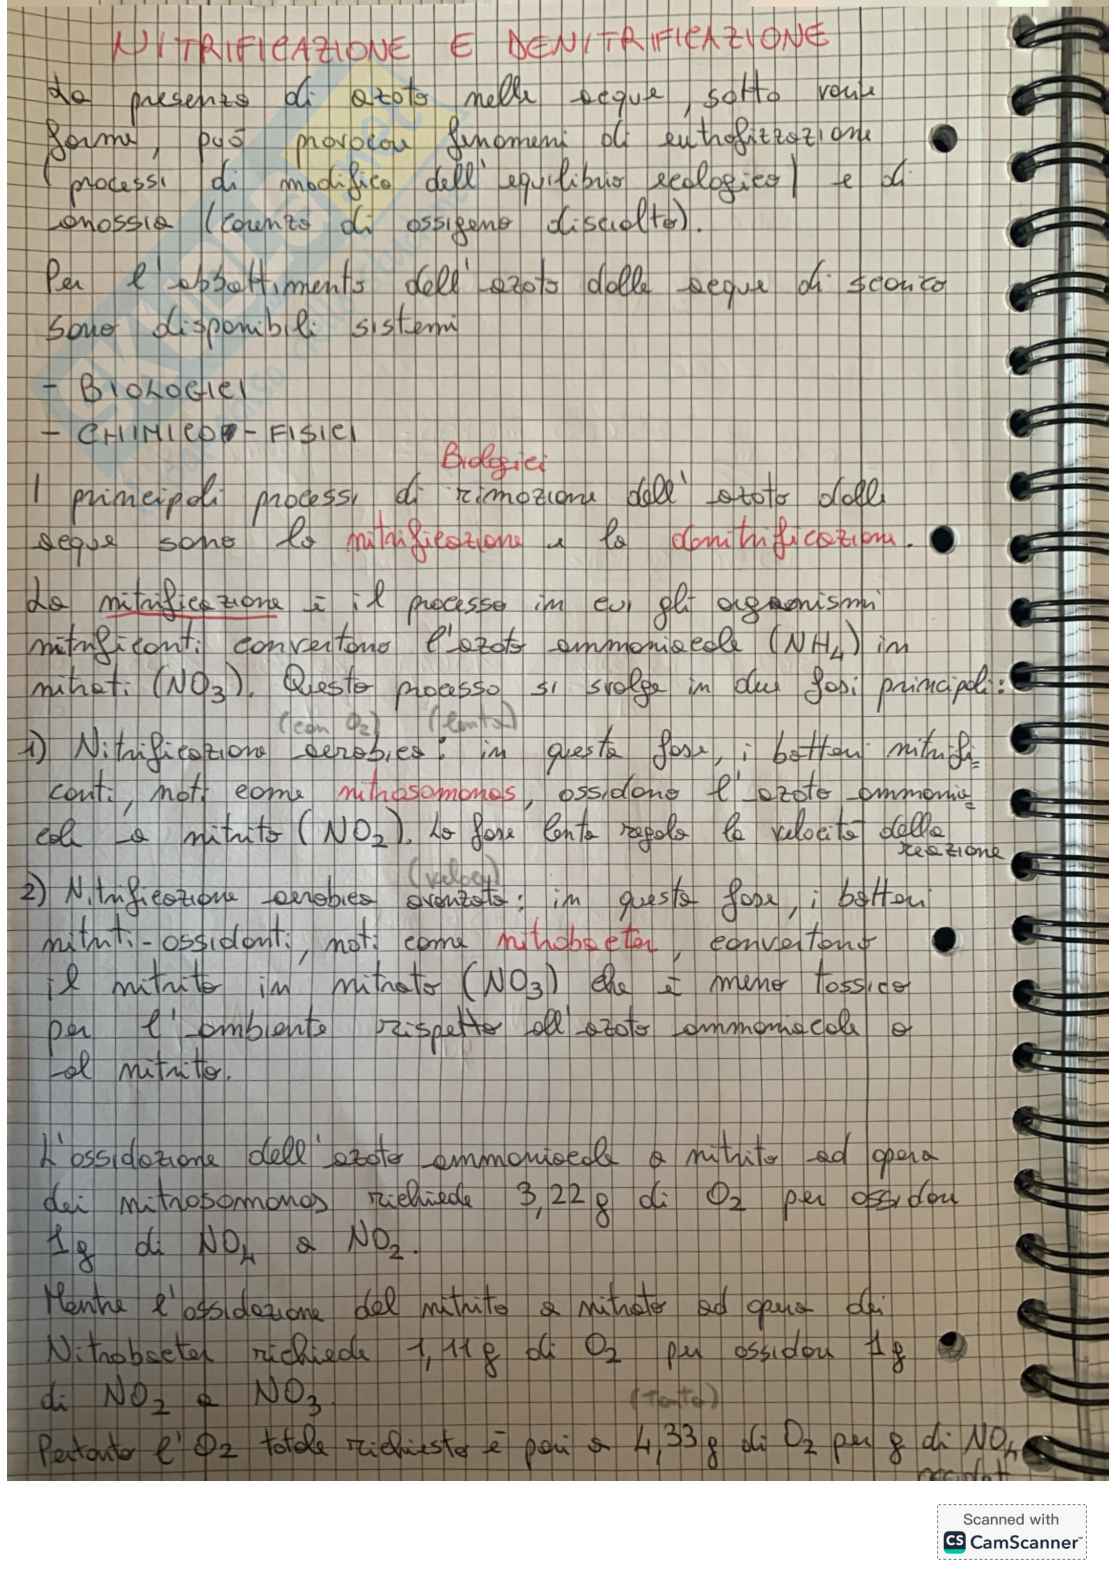 NITRIFICAZIONE E DENITRIFICAZIONE
La presenza di azoto nelle acque, sotto varie
forme, può provocare fenomeni di eutrofizzazione
(processi di modifica dell'equilibrio ecologico) e di
anossia (carenza di ossigeno disciolto).
Per l'abbattimento dell'azoto dalle acque di scarico
sono disponibili sistemi
- BIOLOGICI
- CHIMICO - FISICI
Biologici
I principali processi di rimozione dell'azoto dalle
acque sono la nitrificazione e la denitrificazione.
La nitrificazione è il processo in cui gli organismi
nitrificanti convertono l'azoto ammoniacale (NH4) in
nitrati (NO3). Questo processo si svolge in due fasi principali:
(con O2) (lenta)
1) Nitrificazione aerobica: in questa fase, i batteri nitrifi=
canti, noti come nitrosomonas, ossidano l'azoto ammonia=
cale a nitrito (NO2). La fase lenta regola la velocità della
reazione
(veloce)
2) Nitrificazione aerobica avanzata: in questa fase, i batteri
nitriti-ossidanti, noti come nitrobacter, convertono
il nitrito in nitrato (NO3) che è meno tossico
per l'ambiente rispetto all'azoto ammoniacale o
al nitrito.
L'ossidazione dell'azoto ammoniacale a nitrito ad opera
dei nitrosomonas richiede 3,22 g di O2 per ossidare
1g di NO4 a NO2.
Mentre l'ossidazione del nitrito a nitrato ad opera dei
Nitrobacter richiede 1,11 g di O2 per ossidare 1g
di NO2 a NO3
(tanto)
Pertanto l'O2 totale richiesto è pari a 4,33 g di O2 per g di NO4
Scanned with
CS CamScanner